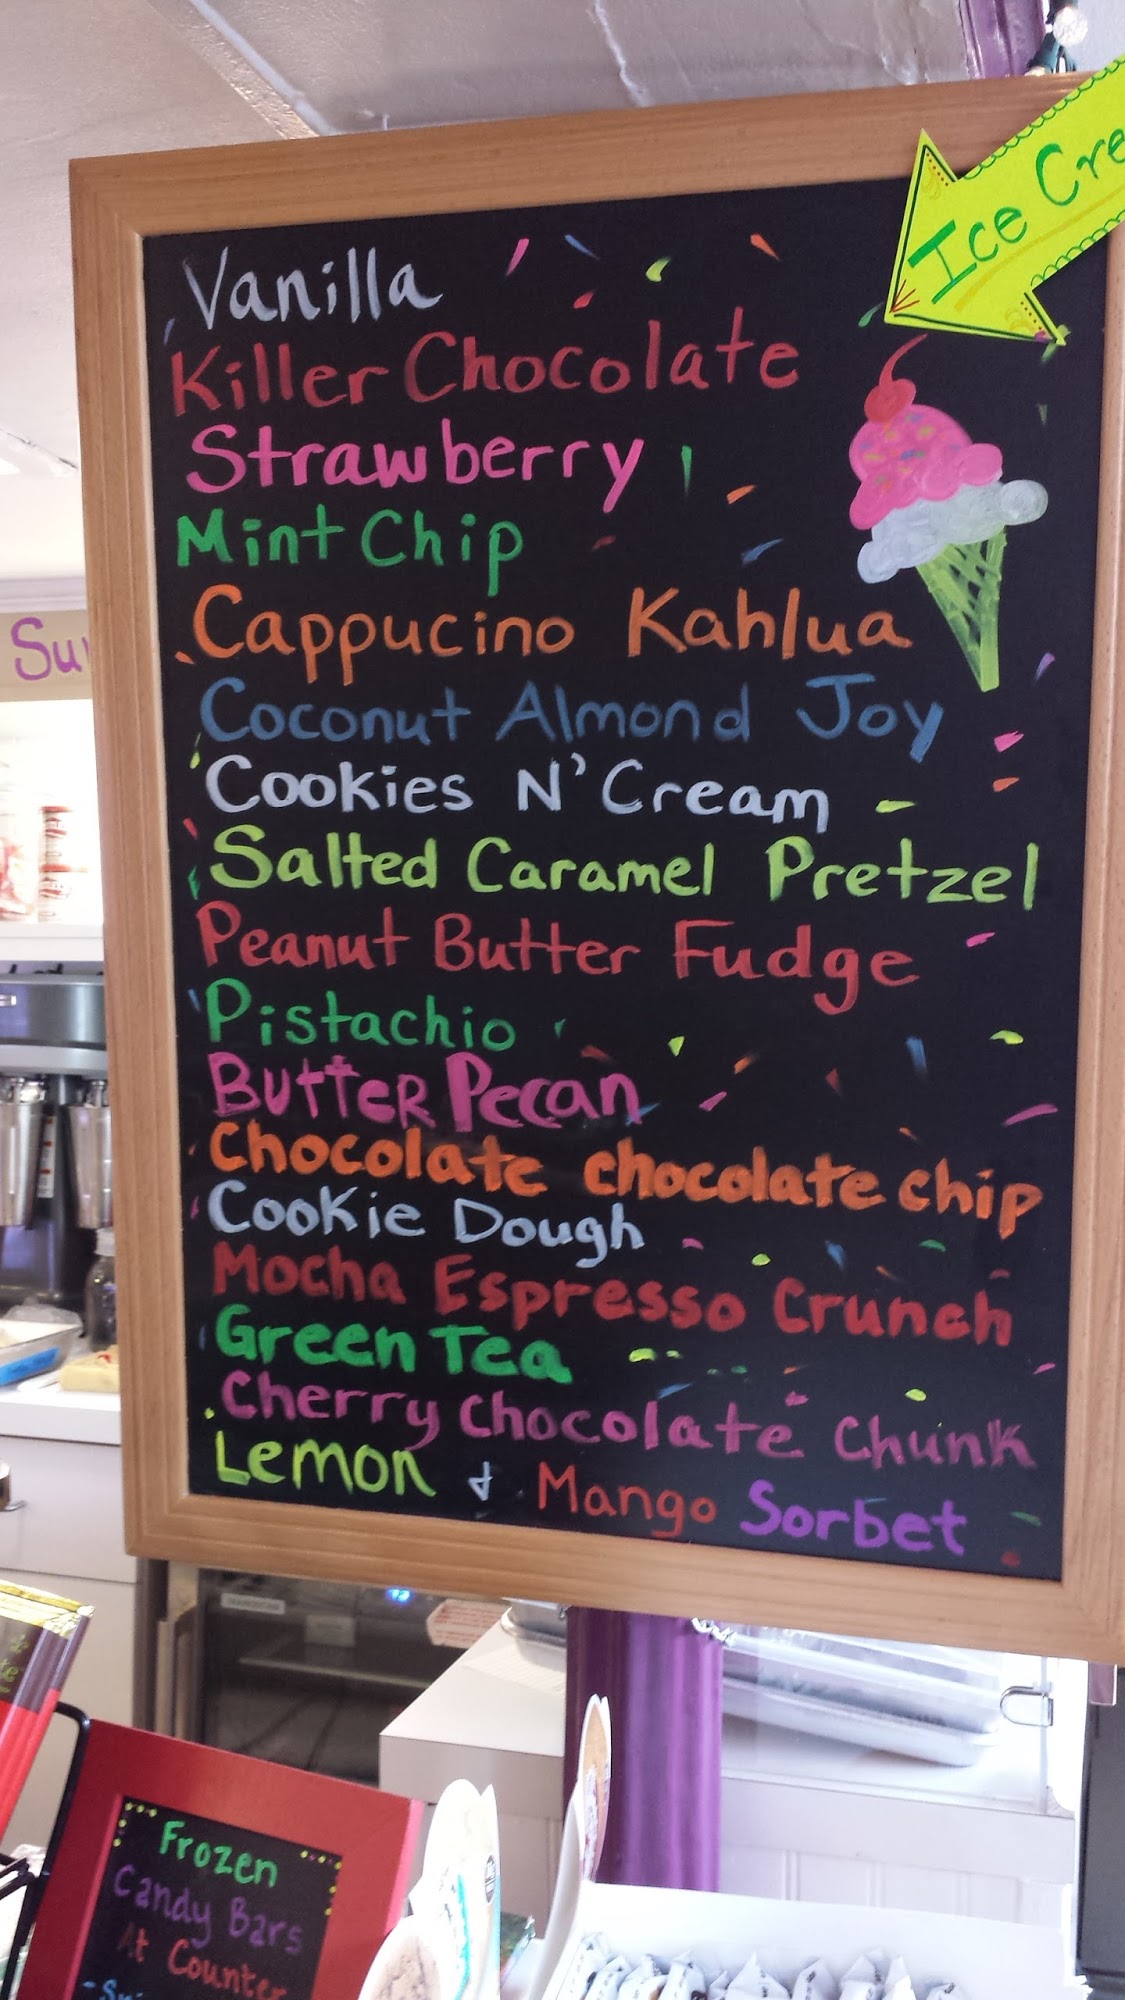 Ice Cre
Vanilla
Killer Chocolate
Strawberry
Mint Chip
Cappucino Kahlua
Coconut Almond Joy
Cookies N' Cream
Salted Caramel Pretzel
Peanut Butter Fudge
Pistachio
Butter Pecan
Chocolate chocolate chip
Cookie Dough
Mocha Espresso Crunch
Green Tea
Cherry Chocolate Chunk
Lemon & Mango Sorbet
Frozen
Candy Bars
At Counter